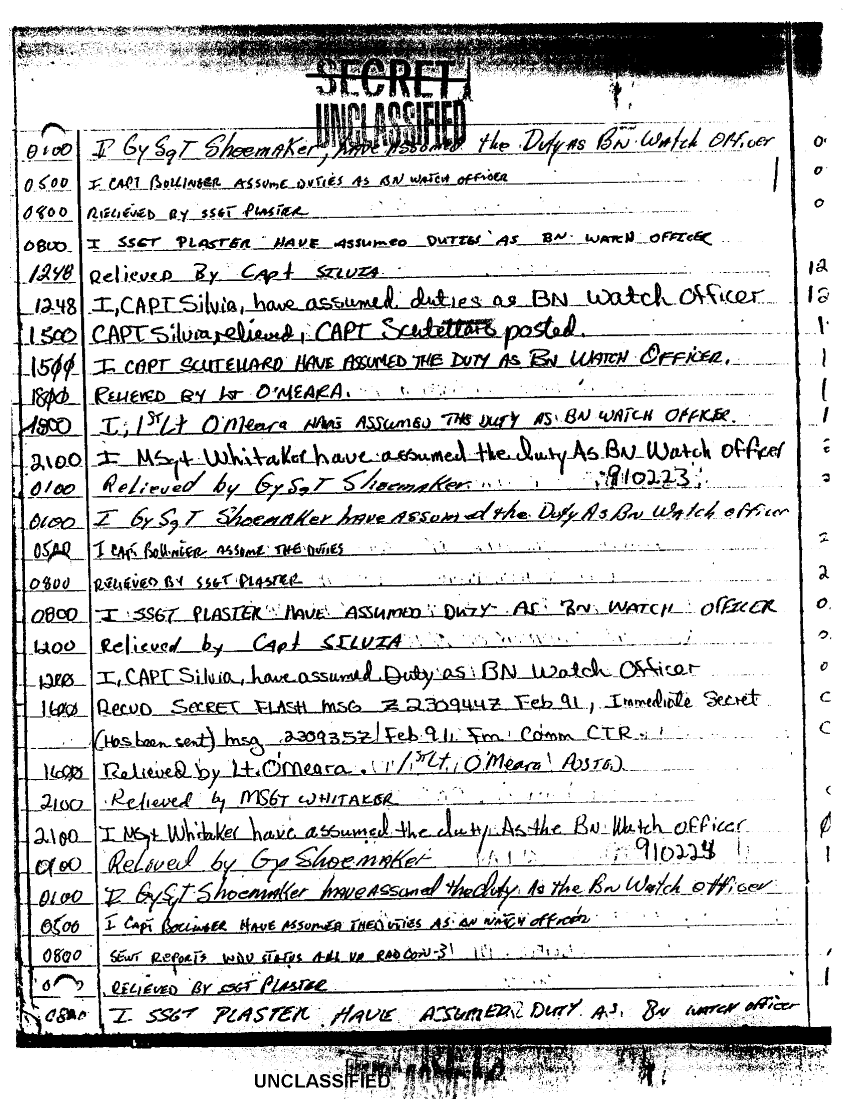 SECRET
UNCLASSIFIED
0100 I GySgT Shoemaker, HAVE ASSUMED the Duty AS BN Watch Officer
0500 I CAPT BOLLINGER ASSUME DUTIES AS BN WATCH OFFICER
0800 RELIEVED BY SSGT PLASTER
0800 I SSGT PLASTER HAVE ASSUMED DUTIES AS BN WATCH OFFICER
1248 Relieved By Capt SILVIA
1248 I, CAPT Silvia, have assumed duties as BN Watch Officer
1500 CAPT Silvia relieved, CAPT posted.
1500 I CAPT SCUTELLARD HAVE ASSUMED THE DUTY AS BN WATCH OFFICER.
1800 RELIEVED BY Lt O'MEARA.
1800 I, 1st Lt O'Meara HAVE ASSUMED THE DUTY AS BN WATCH OFFICER.
2100 I MSgt Whitaker have assumed the duty As BN Watch officer
0100 Relieved by GySgT Shoemaker 910223
0100 I GySgT Shoemaker have ASSUMED the Duty As BN Watch officer
0500 I CAPT BOLLINGER ASSUME THE DUTIES
0800 RELIEVED BY SSGT PLASTER
0800 I SSGT PLASTER HAVE ASSUMED DUTY AS BN WATCH OFFICER
1200 Relieved by Capt SILVIA
1200 I, CAPT Silvia, have assumed Duty as BN Watch Officer
1600 RECVD SECRET FLASH MSG Z 230944Z Feb 91, Immediate Secret
(Has been sent) msg 230935Z Feb 91 Fm Comm CTR.
1600 Relieved by Lt. O'Meara. 1st Lt, O'Meara POSTED
2100 Relieved by MSGT WHITAKER
2100 I MSgt Whitaker have assumed the duty As the BN Watch officer
0100 Relieved by Gy Shoemaker 910224
0100 I GySgT Shoemaker have assumed the duty As the BN Watch officer
0500 I CAPT BOLLINGER HAVE ASSUMED THE DUTIES AS BN WATCH OFFICER
0800 SENT REPORTS STATUS
RELIEVED BY SSGT PLASTER
0800 I SSGT PLASTER HAVE ASSUMED DUTY AS BN WATCH OFFICER
UNCLASSIFIED